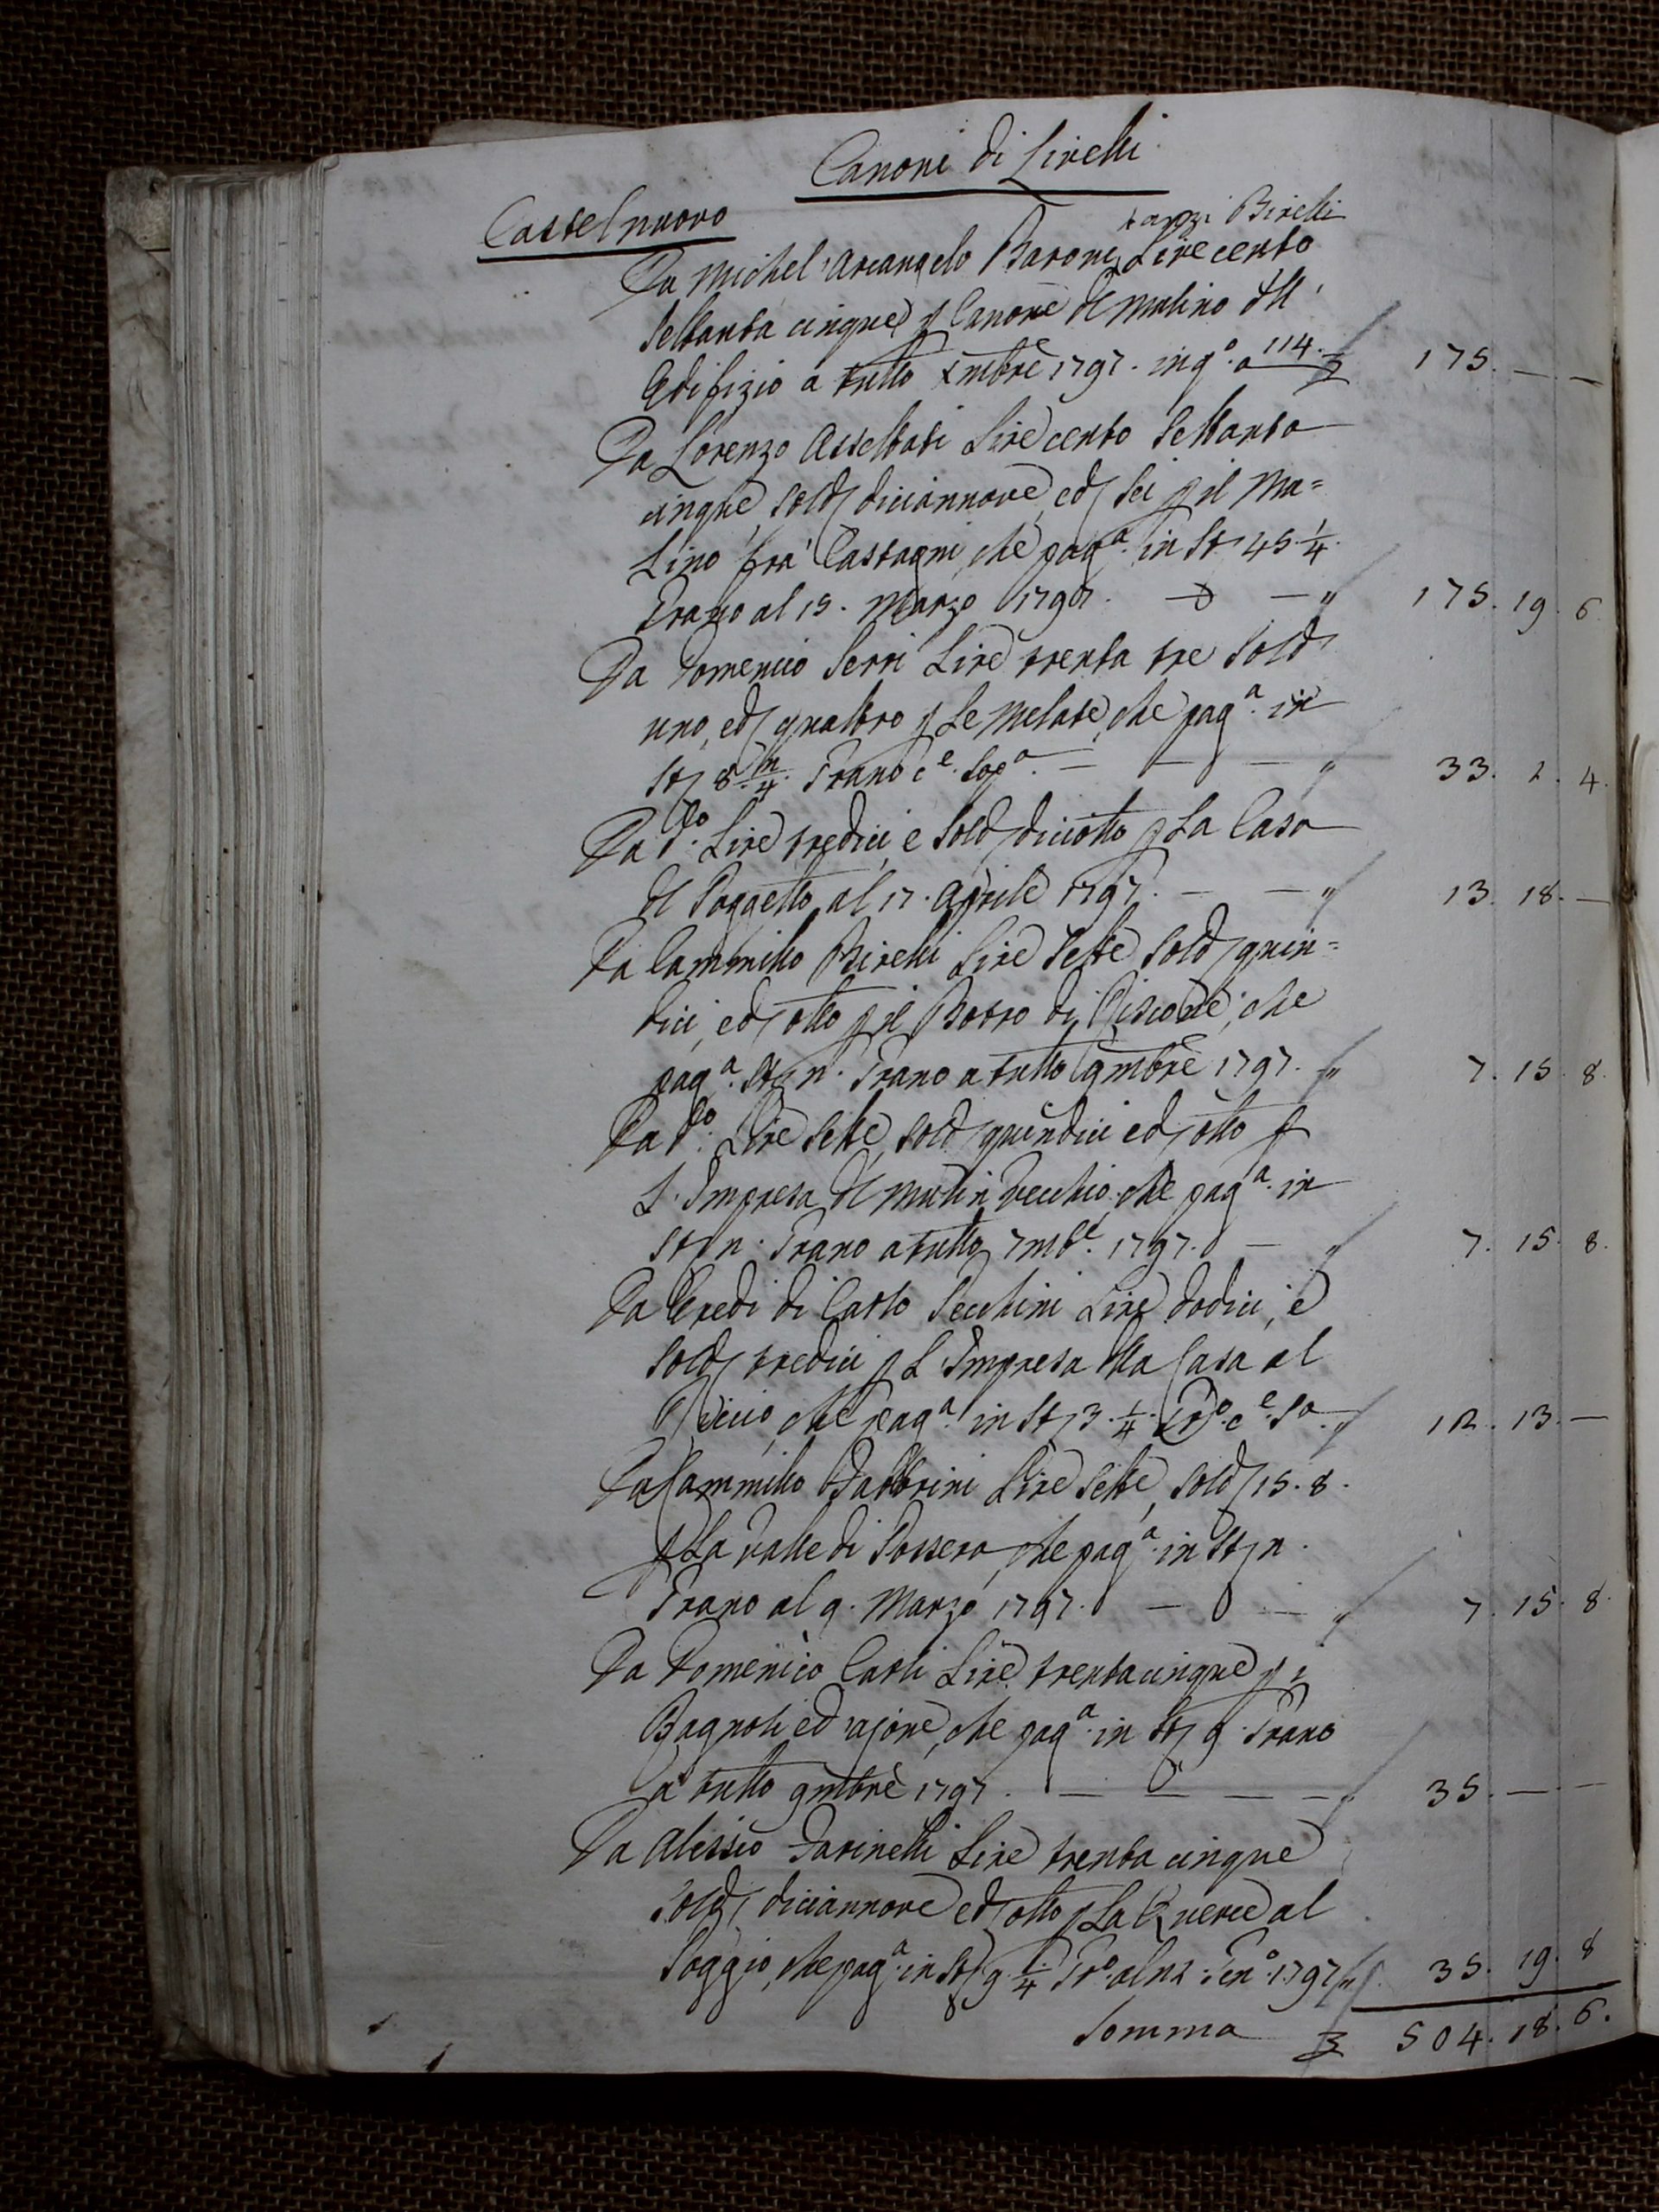 Canoni di Livelli
Castelnuovo
Da Michel'Arcangelo Baroni Lire cento
Birelli
Settanta cinque p Canone del Mulino dell'
Edifizio a tutto Xmbre 1797. in q.o a 114. 175. — —
Da Lorenzo Assettati Lire cento Settanta
cinque, Soldi diciannove, ed Sei p il Mu=
Lino fra' Castagni, che pag.a in St. 45 1/4.
Grano al 15. Marzo 1797. — „ 175. 19. 6.
Da Domenico Serri Lire trenta tre Soldi
uno, ed quattro p Le Melate, che pag.a in
St. 8. 2/4. Grano c.e Sop.a — — — „ 33. 1. 4.
Da d.o Lire tredici, e Soldi diciotto p La Casa
del Poggetto al 17. Aprile 1797. — — „ 13. 18. —
Da Cammillo Birelli Lire Sette Soldi quin=
dici, ed otto p il Botro di, che
pag.a St. 2. Grano a tutto 9mbre 1797. „ 7. 15. 8.
Da d.o Lire Sette, Soldi quindici ed otto p
L'Impresa del Mulin Vecchio, che pag.a in
St. 2. Grano a tutto 7mb.e 1797. — „ 7. 15. 8.
Da Eredi di Carlo Secchini Lire dodici, e
Soldi tredici p L'Impresa della Casa al
che pag.a in St. 3. 1/4. Gr.o c.e S.a „ 12. 13. —
Da Cammillo Fabbrini Lire Sette, Soldi 15. 8.
p La Valle di Possera, che pag.a in St. 2.
Grano al 9. Marzo 1797. — — „ 7. 15. 8.
Da Domenico Carli Lire trenta cinque p i
Bagnoli ed ajone, che pag.a in St. 9. Grano
a tutto 9mbre 1797. — — — — „ 35. — —
Da Alessio Farinelli Lire trenta cinque
Soldi diciannove ed otto p La Querce al
Poggio, che pag.a in St. 9. 1/4 Gr.o al 12. Gen.o 1797 „ 35. 19. 8
Somma 504. 18. 6.